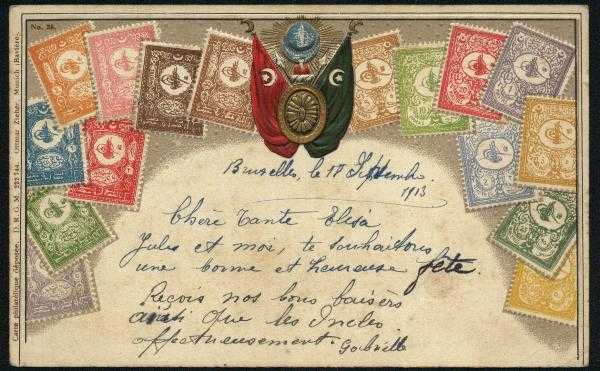 No. 28.
Carte philatélique déposée. D. R. G. M. 222744. Ottmar Zieher, Munich (Bavière).
Bruxelles, le 18 Septembre
1913
Chère Tante Elisa
Jules et moi, te souhaitons
une bonne et heureuse fête.
Reçois nos bons baisers
ainsi que les Oncles
affectueusement. Gabrielle